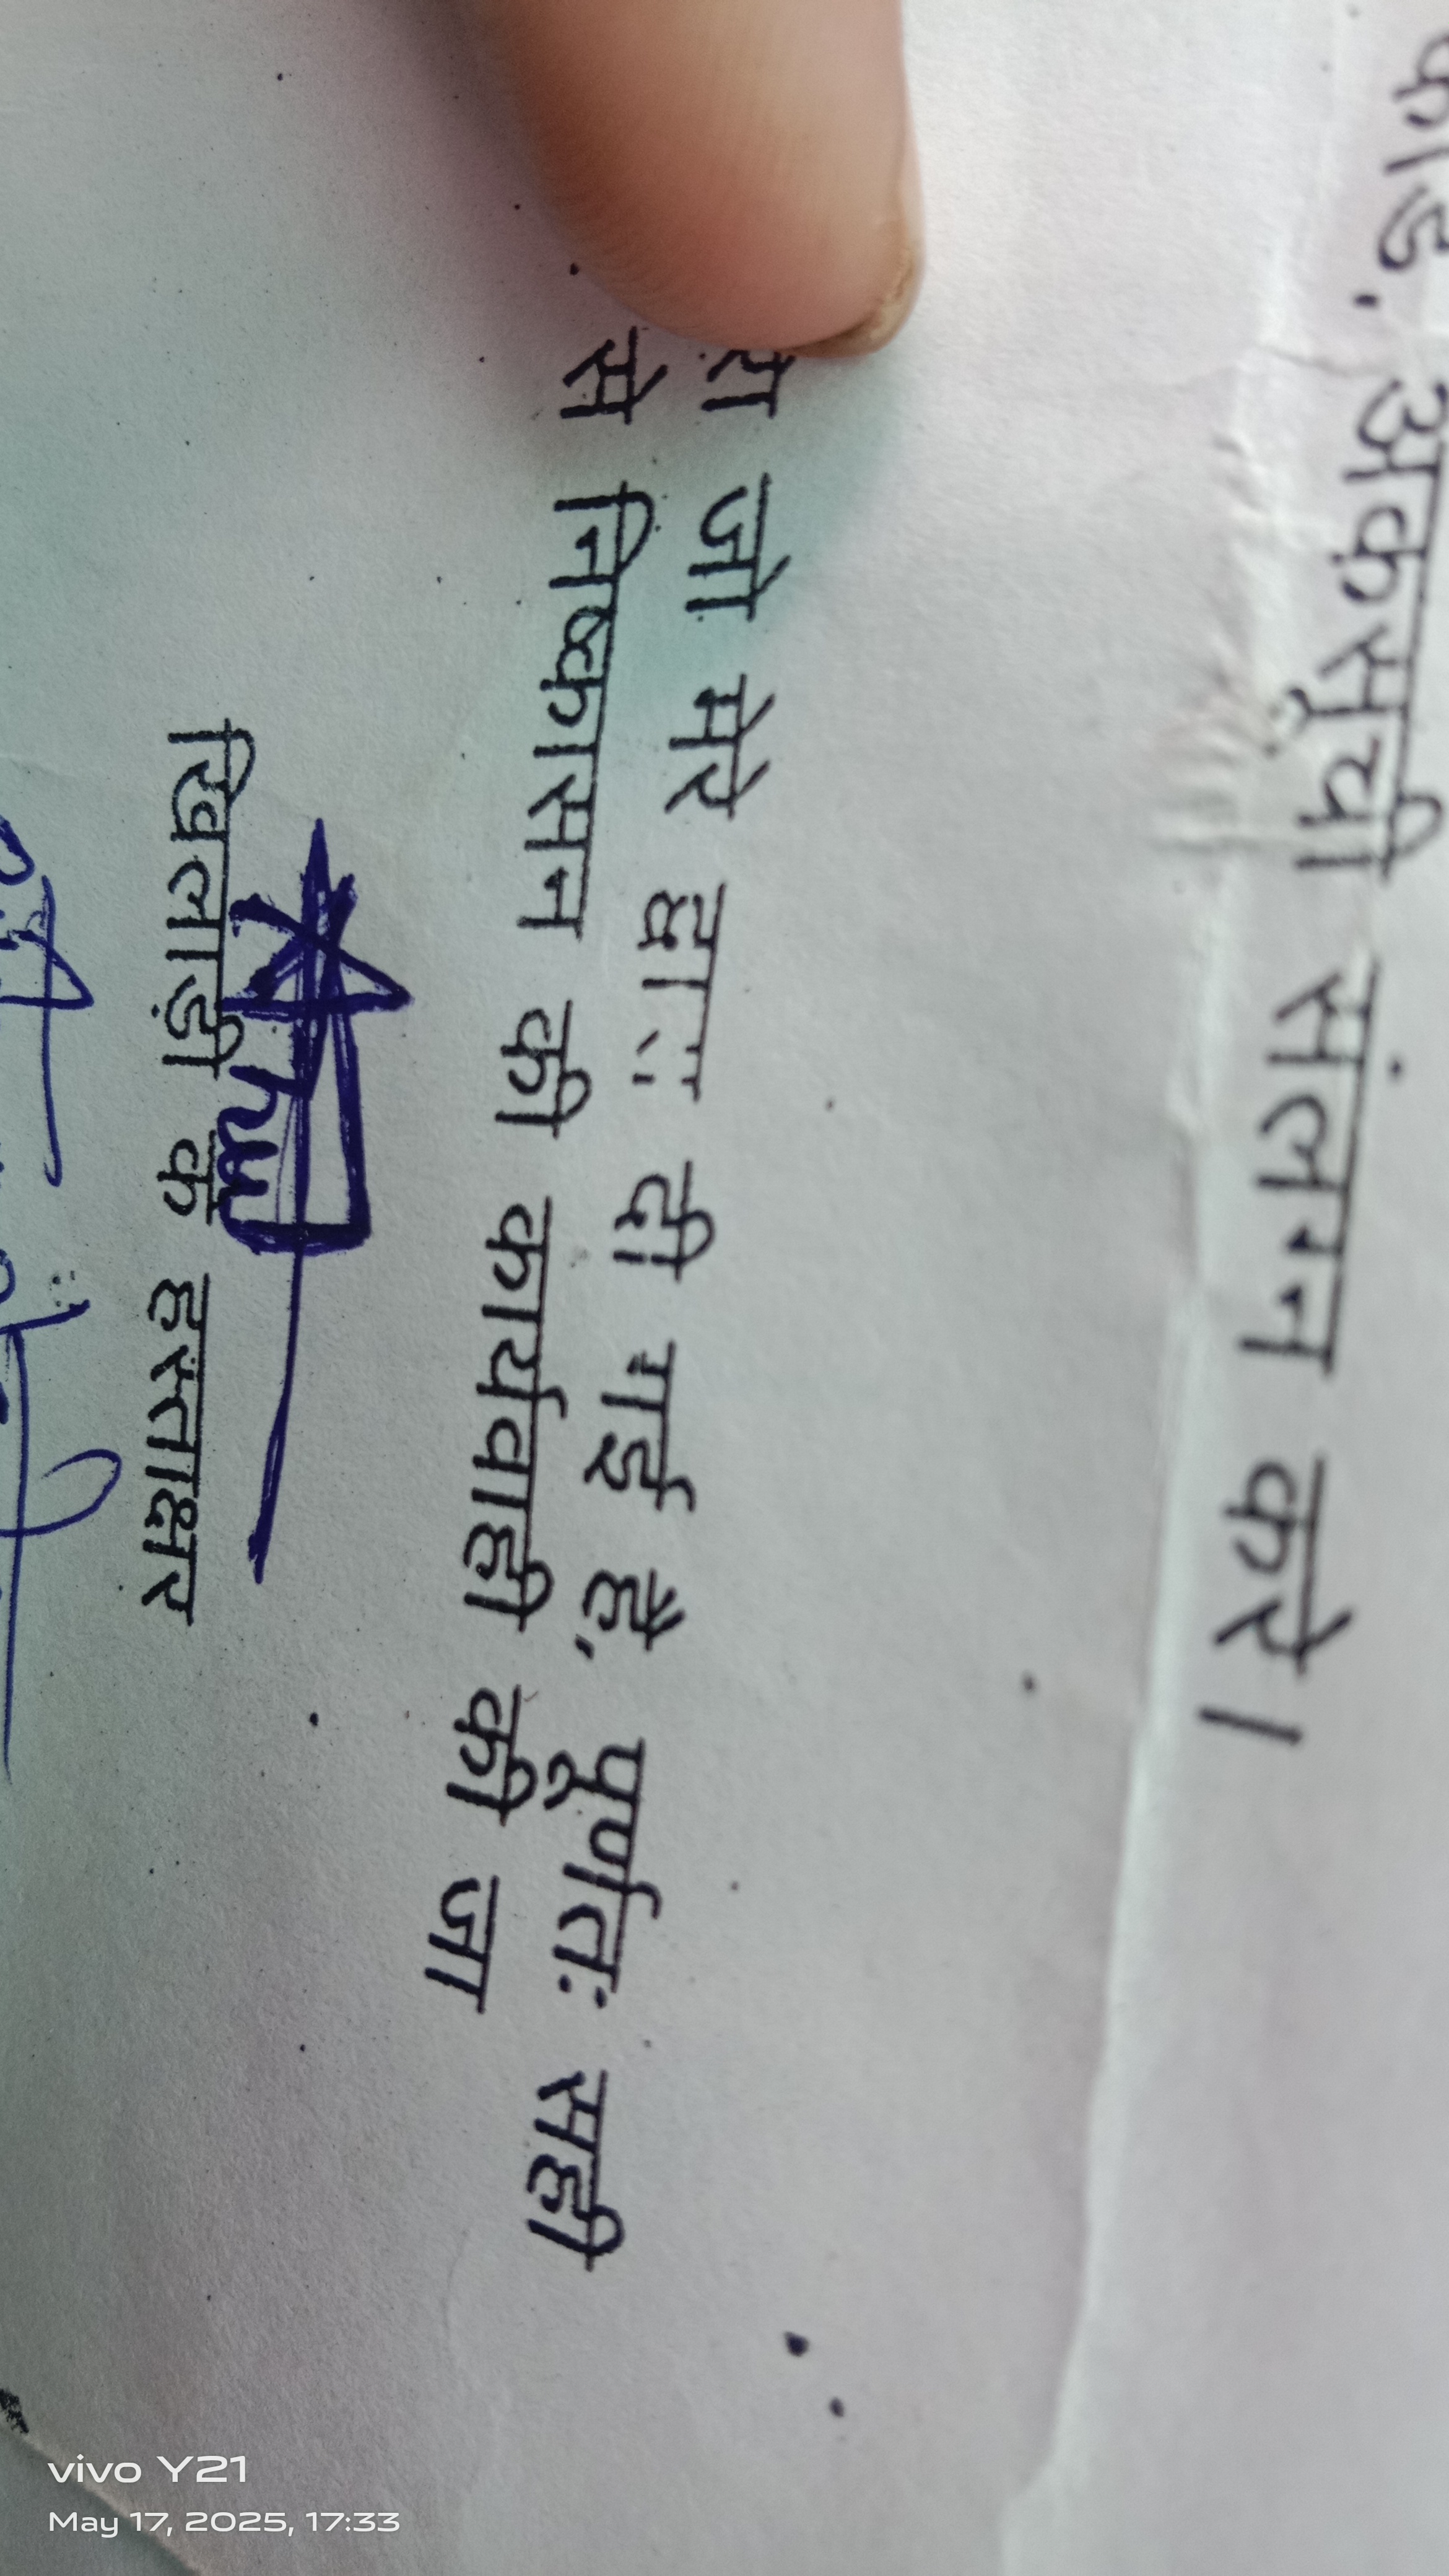 कार्ड, अंकसूची संलग्न करे।
जो मेरे द्वारा दी गई है, पूर्णतः सही
से निष्कासन की कार्यवाही की जा
खिलाड़ी के हस्ताक्षर
vivo Y21
May 17, 2025, 17:33